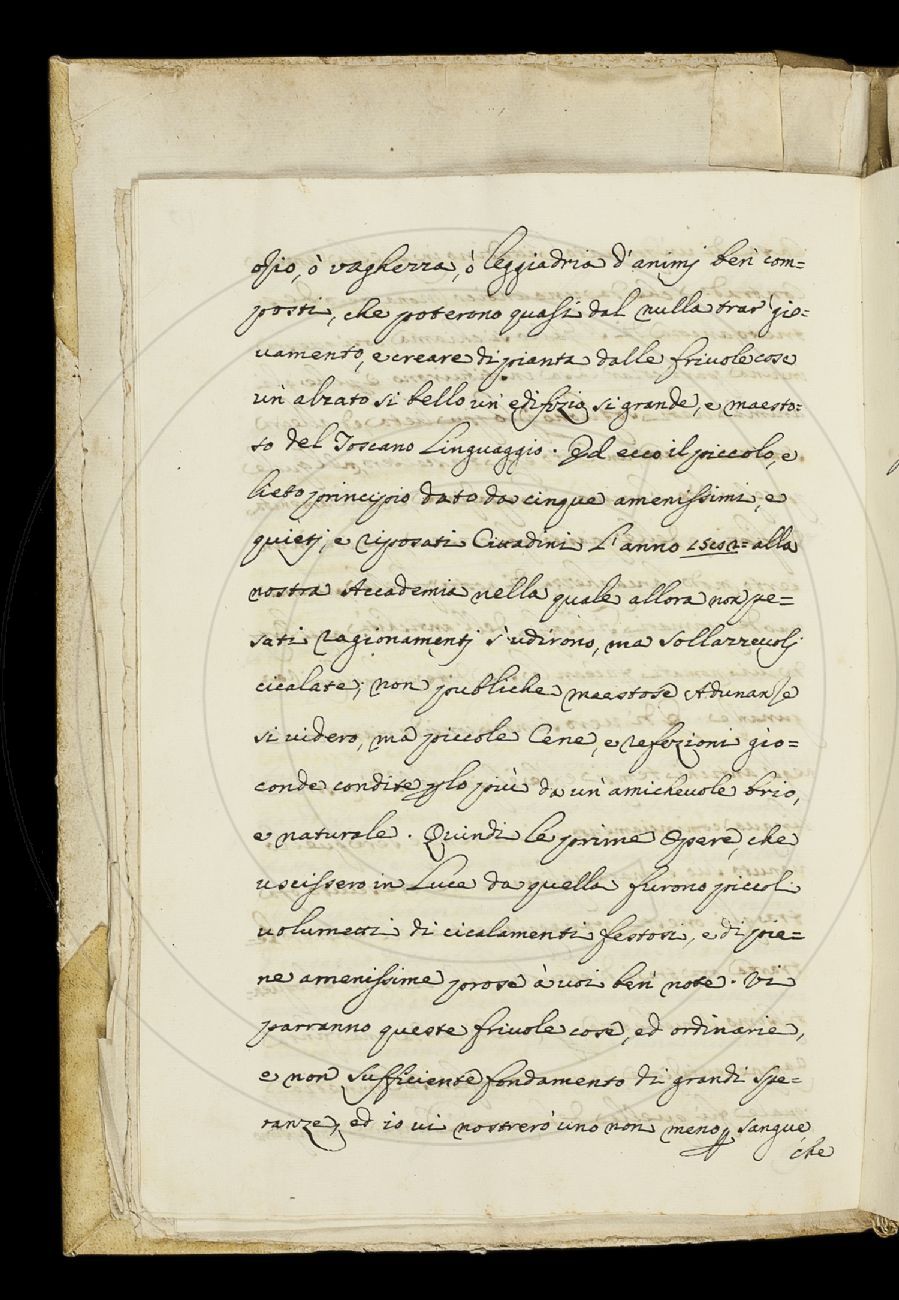 ozio, ò vaghezza, ò leggiadria d'animj ben com=
posti, che poterono quasi dal nulla trar gio=
vamento, e creare di pianta dalle frivole cose
un' alzato si bello un' edifizio si grande, e maesto=
so del Toscano Linguaggio. Ed ecco il piccolo, e
lieto principio dato da cinque amenissimi, e
quietj, e riposati Cittadini L'anno alla
nostra Accademia nella quale allora non pe=
sati ragionamentj s'udirono, ma sollazzevolj
cicalate; non publiche maestose Adunanze
si videro, ma piccole Cene, e refezioni gio=
conde condite p lo più da un' amichevole brio,
e naturale. Quindi le prime Opere, che
uscissero in Luce da quella furono piccoli
volumetti di cicalamenti festosi, e di pie=
ne amenissime prose à voi ben note. Vi
parranno queste frivole cose, ed ordinarie,
e non sufficiente fondamento di grandi spe=
ranze, ed io vi mostrerò uno non meno p sangue
che